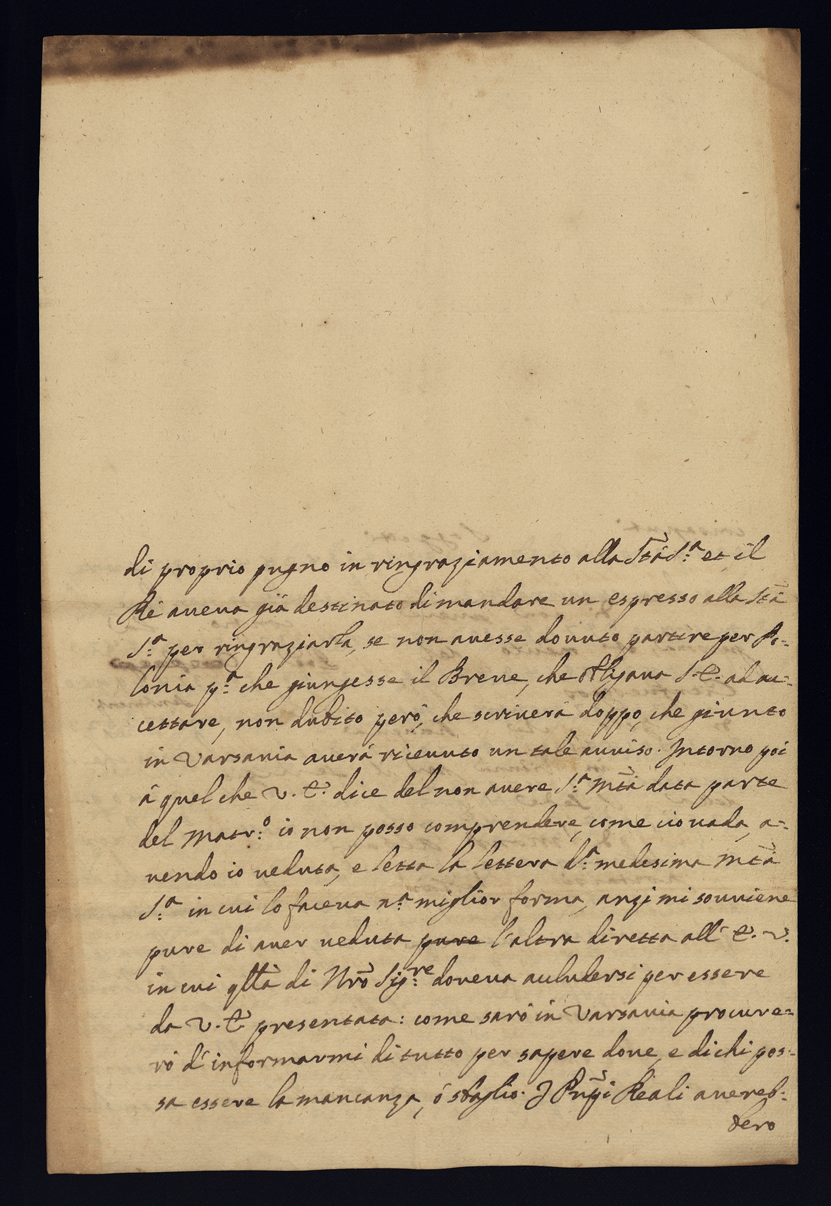 di proprio pugno in ringraziamento alla Stà S.ª et il
Rè aueua già destinato di mandare un espresso alla Stà
S.ª per ringraziarla, se non auesse douuto partire per Po-
lonia p.ª che giungesse il Breue, che S. E. ad ac-
cettare, non dubito però, che scriuerà doppo, che giunto
in Varsauia auerà riceuuto un tale auuiso. Intorno poi
à quel che V. E. dice del non auere S.ª Mtà data parte
del Matr.º io non posso comprendere, come ciò uada, a-
uendo io ueduta, e letta la lettera d.ª medesima Mtà
S.ª in cui lo faceua n.ª miglior forma, anzi mi souuiene
pure di auer ueduta pure l'altra diretta all' E. V.
in cui qllà di Nrõ Sig.re doueua acludersi per essere
da V. E. presentata: come sarò in Varsauia procure-
rò d'informarmi di tutto per sapere doue, e di chi pos-
sa essere la mancanza, ó sbaglio. I Pnpi Reali auereb-
bero